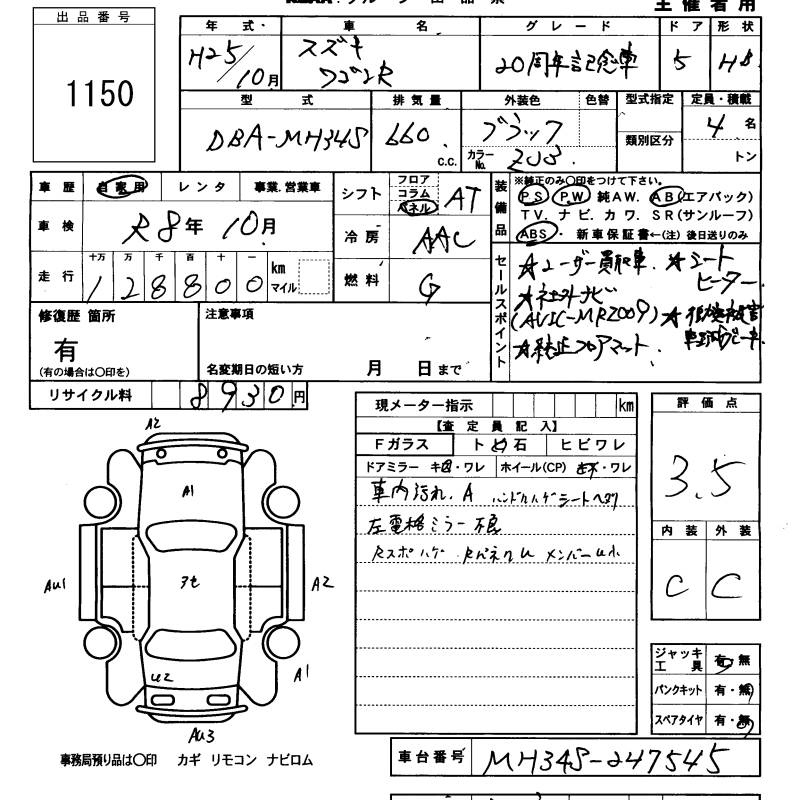 主催者用
出品番号
1150
年式・ 車名 グレード ドア 形状
H25/10月 スズキ ワゴンR 20周年記念車 5 HB
型式 排気量 外装色 色替 型式指定 定員・積載
DBA-MH34S 660 c.c. ブラック 類別区分 4 名
カラーNo. ZJ3 トン
車歴 自家用 レンタ 事業.営業車
車検 R8年 10月
走行 十万 万 千 百 十 一 km マイル
128800
シフト フロア コラム パネル AT
冷房 AAC
燃料 G
装備品 ※純正のみ〇印をつけて下さい。
PS PW 純AW. AB(エアバック)
TV. ナビ. カワ. SR(サンルーフ)
ABS・ 新車保証書←(注) 後日送りのみ
セールスポイント
★ユーザー買取車. ★シートヒーター.
★社外ナビ
(AVIC-MRZ009)
★純正フロアマット.
修復歴 箇所 注意事項
有
(有の場合は〇印を) 名変期日の短い方 月 日まで
リサイクル料 8930円
現メーター指示 km
【査定員記入】
Fガラス ト ビ 石 ヒビワレ
ドアミラー キズ・ワレ ホイール(CP) キズ・ワレ
車内汚れ.A ハンドルハゲ シートヘタリ
左電格ミラー不良
Rスポハゲ RパネクU メンバーU小
評価点
3.5
内装 外装
C C
ジャッキ工具 有・無
パンクキット 有・無
スペアタイヤ 有・無
A2
A1
AU1
A2
U2
A1
AU3
事務局預り品は〇印 カギ リモコン ナビロム
車台番号 MH34S-247545